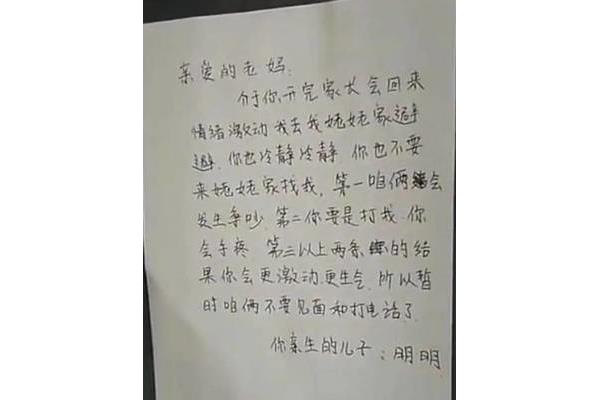 亲爱的老妈:
介于你开完家长会回来
情绪激动我去我姥姥家避
避.你也冷静冷静.你也不要
来姥姥家找我,第一咱俩会
发生争吵.第二你要是打我.你
会手疼.第三以上两条的结
果你会更激动.更生气.所以暂
时咱俩不要见面和打电话了.
你亲生的儿子:明明